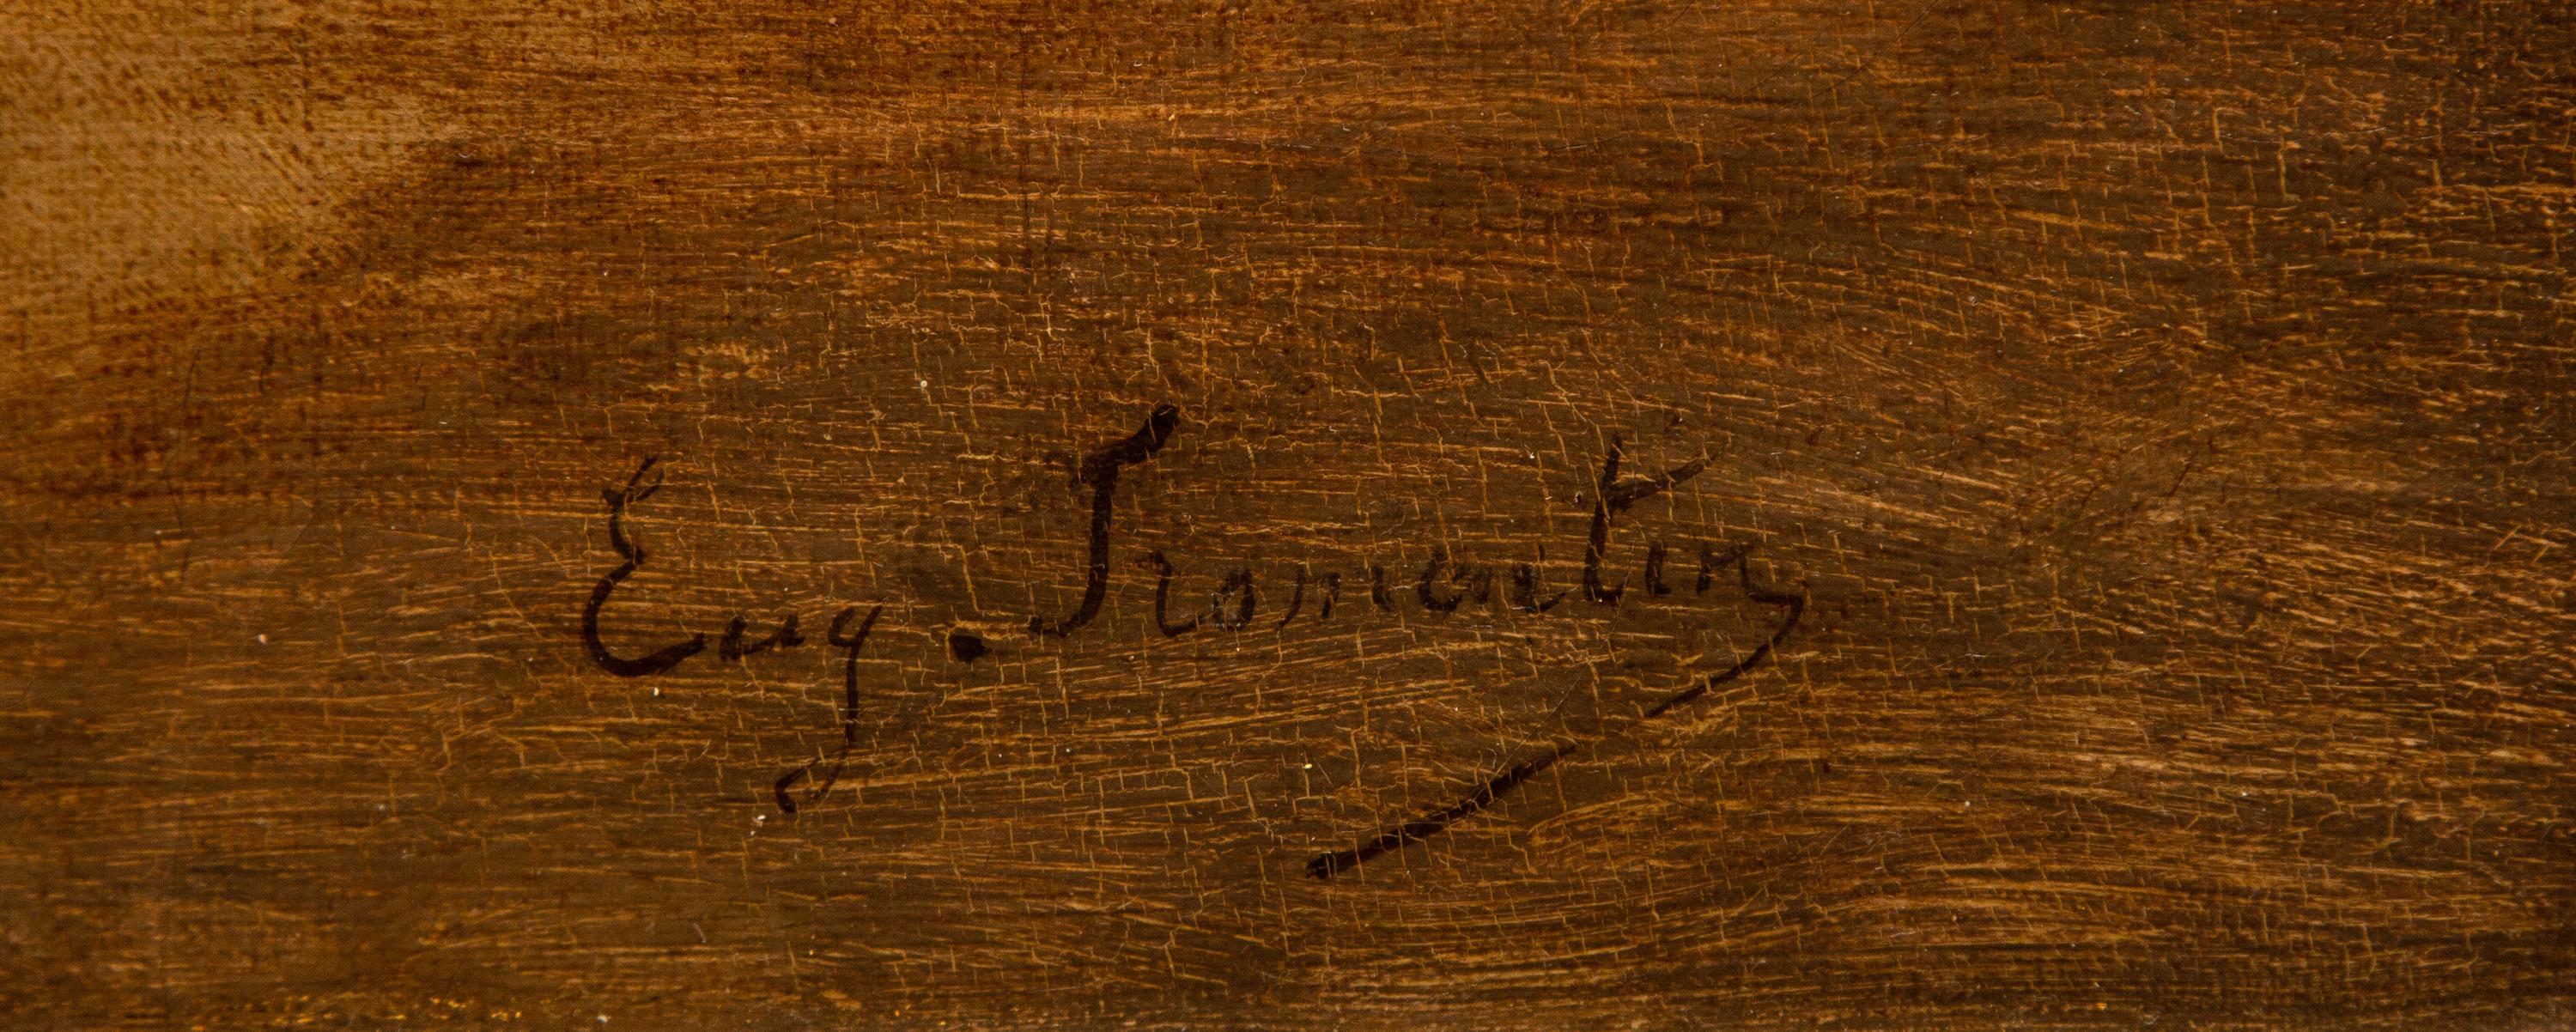 Eug. Fromentin